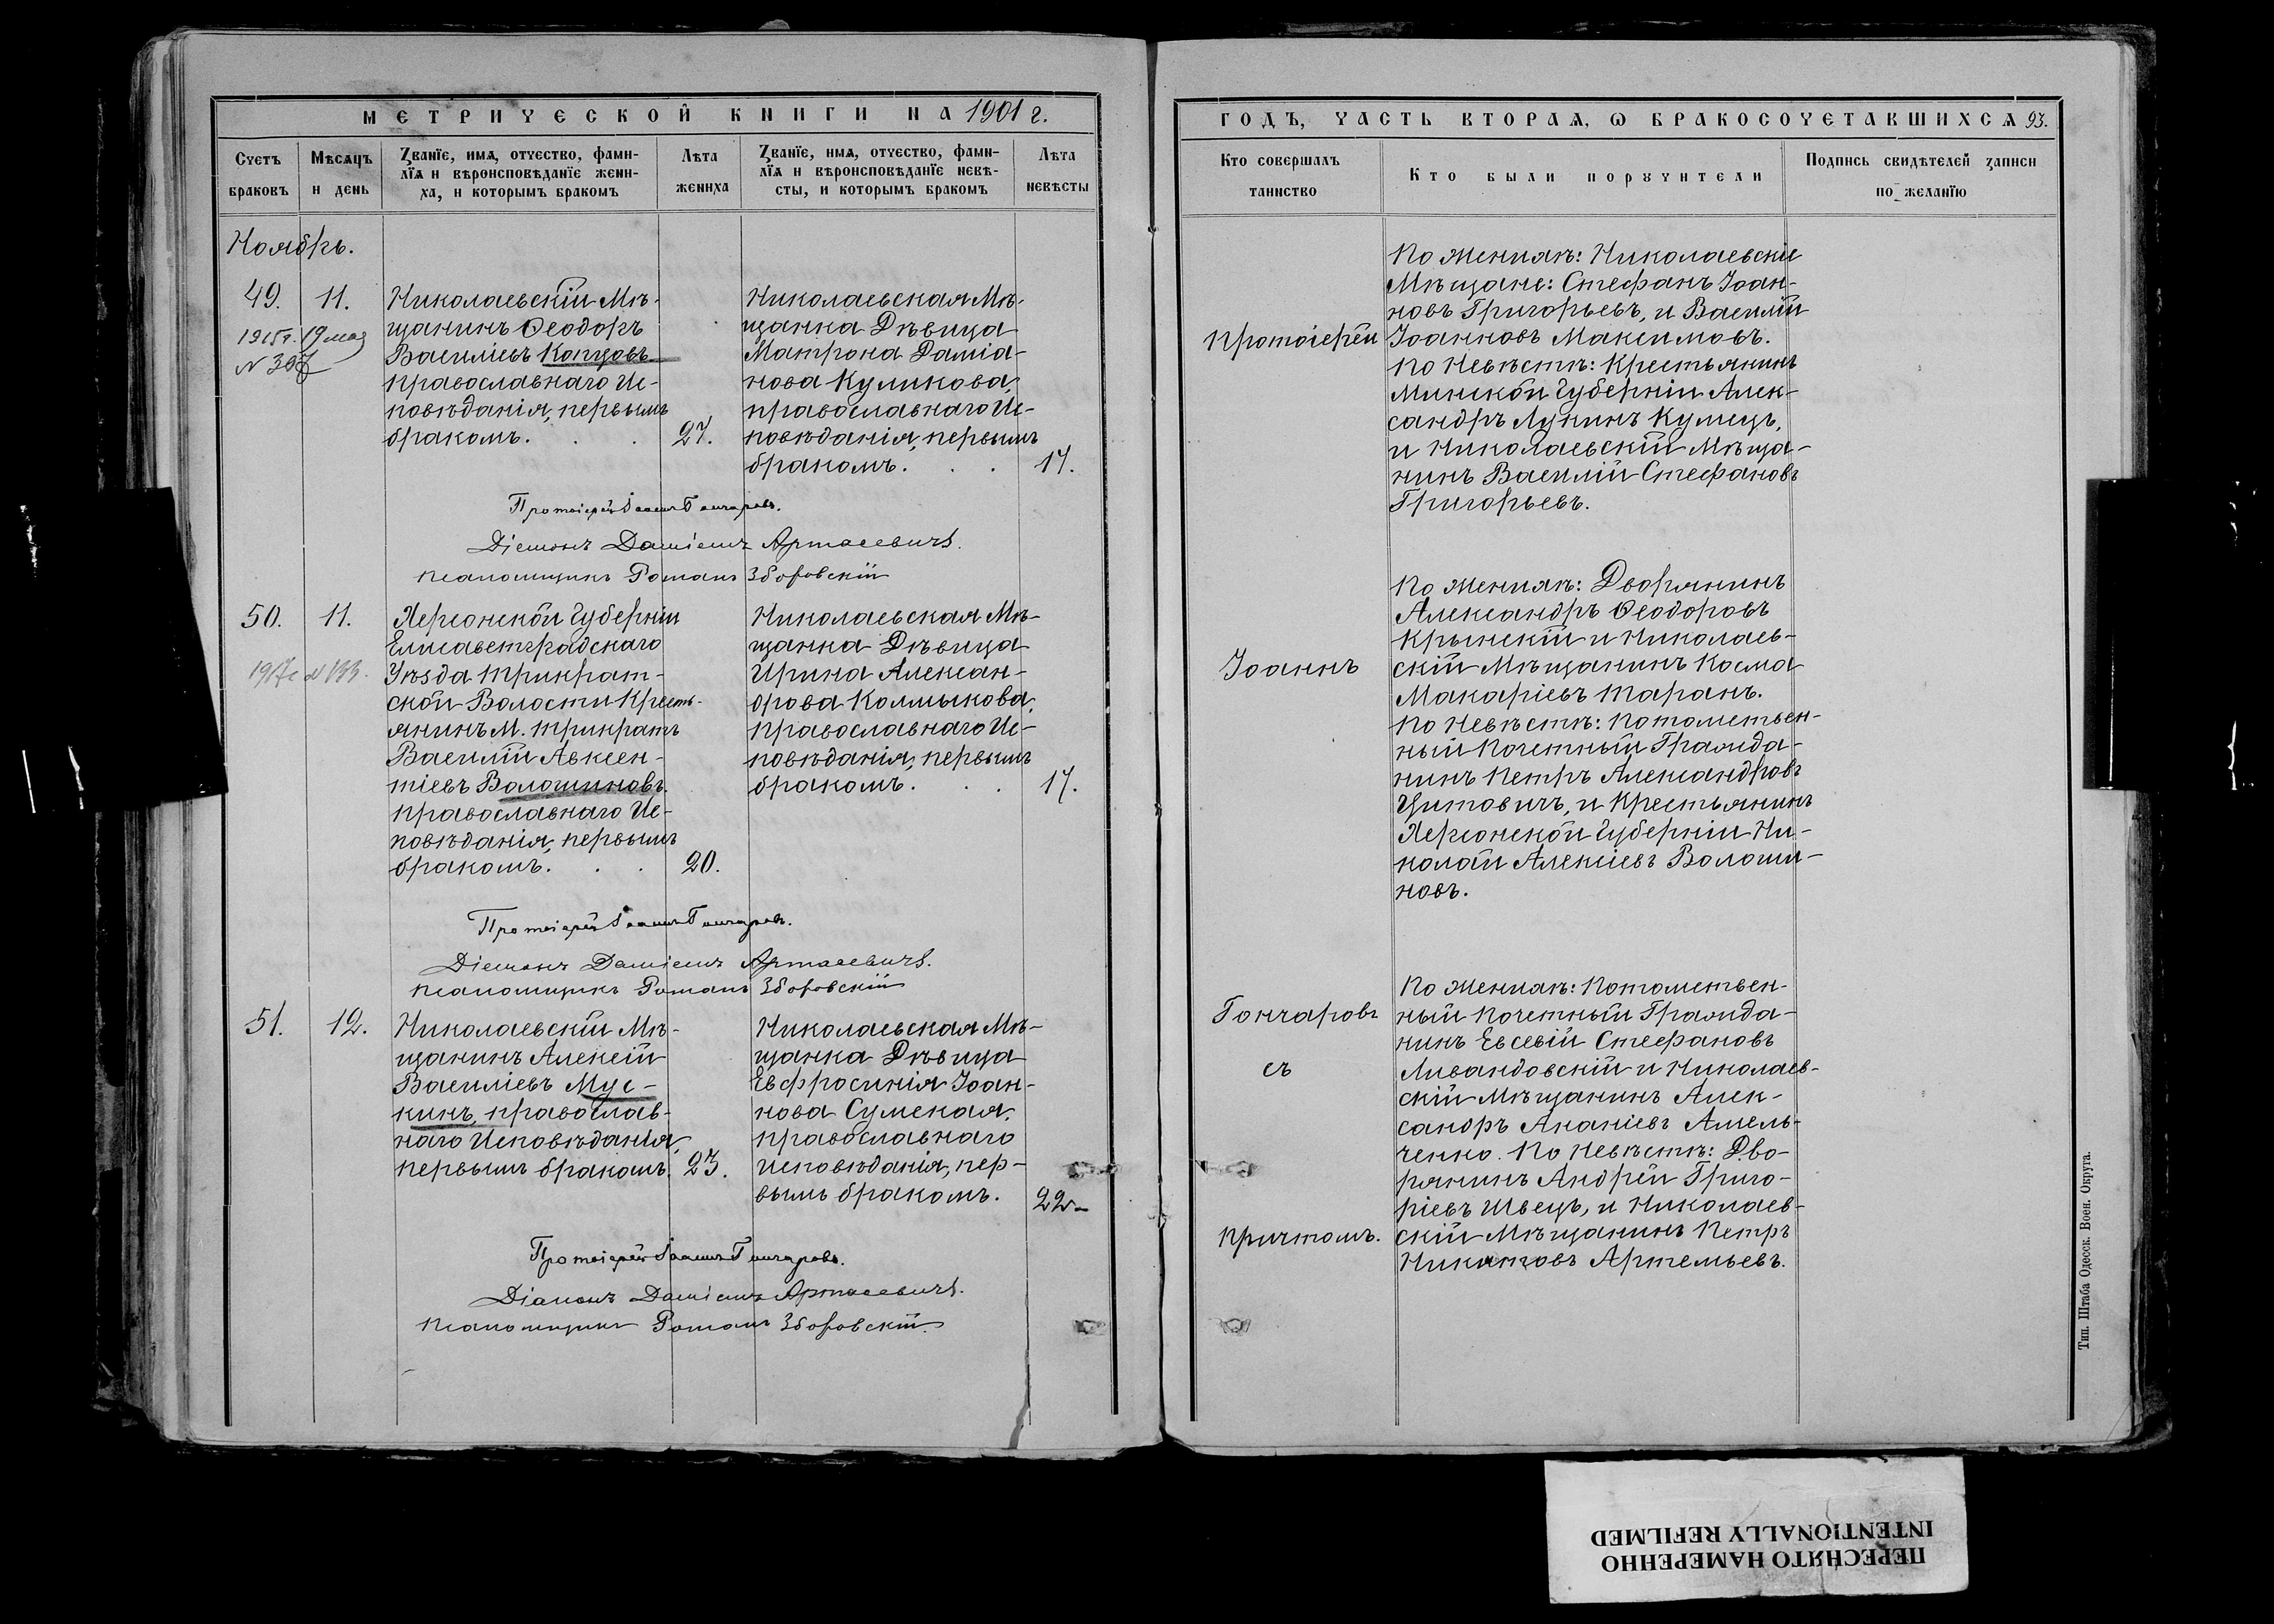 МЕТРИЧЕСКОЙ КНИГИ НА 1901 г.
Счетъ браковъ
Мѣсяцъ и день
Званїе, имѧ, отчество, фами-
лїѧ и вѣроисповѣданїе жени-
ха, и которымъ бракомъ
Лѣта жениха
Званїе, имѧ, отчество, фами-
лїѧ и вѣроисповѣданїе невѣ-
сты, и которымъ бракомъ
Лѣта невѣсты
Ноябрь.
49. 11.
1915 г. 19 мая
N 397
Николаевскій Мѣ-
щанинъ Ѳеодоръ
Василіевъ Копцовъ
православнаго Ис-
повѣданія, первымъ
бракомъ. . . 27.
Николаевская Мѣ-
щанка Дѣвица
Матрона Даміа-
нова Куликова,
православнаго Ис-
повѣданія, первымъ
бракомъ. . . 17.
Протоіерей Іоаннъ Гончаровъ.
Діаконъ Даміанъ Артасевичъ.
Псаломщикъ Романъ Зборовскій
50. 11.
Херсонской Губерніи
Елисаветградскаго
Уѣзда Трикрат-
ской Волости Кресть-
янинъ М. Трикратъ
Василій Авксен-
тіевъ Волошиновъ,
православнаго Ис-
повѣданія, первымъ
бракомъ. . . 20.
Николаевская Мѣ-
щанка Дѣвица
Ирина Алексан-
дрова Колмыкова,
православнаго Ис-
повѣданія, первымъ
бракомъ. . . 17.
Протоіерей Іоаннъ Гончаровъ.
Діаконъ Даміанъ Артасевичъ.
Псаломщикъ Романъ Зборовскій
51. 12.
Николаевскій Мѣ-
щанинъ Алексій
Василіевъ Мус-
кинъ, православ-
наго Исповѣданія,
первымъ бракомъ. 23.
Николаевская Мѣ-
щанка Дѣвица
Евфросинія Іоан-
нова Сумская,
православнаго
Исповѣданія, пер-
вымъ бракомъ. 22
Протоіерей Іоаннъ Гончаровъ.
Діаконъ Даміанъ Артасевичъ.
Псаломщикъ Романъ Зборовскій.
ГОДЪ, ЧАСТЬ ВТОРАѦ, Ѡ БРАКОСОЧЕТАВШИХСѦ 93.
Кто совершалъ таинство
Кто были поручители
Подпись свидѣтелей записи по желанїю
Протоіерей
Іоаннъ
Гончаровъ
съ
причтомъ.
По Женихѣ: Николаевскіе
Мѣщане: Стефанъ Іоан-
новъ Григорьевъ, и Василій
Іоанновъ Максимовъ.
По Невѣстѣ: Крестьянинъ
Минской Губерніи Алек-
сандръ Лукинъ Кумецъ,
и Николаевскій Мѣща-
нинъ Василій Стефановъ
Григорьевъ.
По Женихѣ: Дворянинъ
Александръ Ѳеодоровъ
Крынскій и Николаев-
скій Мѣщанинъ Косма
Макаріевъ Таранъ.
По Невѣстѣ: Потомствен-
ный Почетный Гражда-
нинъ Петръ Александровъ
Цитовичъ, и Крестьянинъ
Херсонской Губерніи Ни-
колай Алексіевъ Волоши-
новъ.
По Женихѣ: Потомствен-
ный Почетный Гражда-
нинъ Евсевій Стефановъ
Ливандовскій и Николаев-
скій Мѣщанинъ Алек-
сандръ Ананіевъ Амель-
ченко. По Невѣстѣ: Дво-
рянинъ Андрей Григо-
ріевъ Швецъ, и Николаев-
скій Мѣщанинъ Петръ
Никитовъ Артемьевъ.
Тип. Штаба Одесск. Воен. Округа.
ПЕРЕСНЯТО НАМЕРЕННО
INTENTIONALLY REFILMED